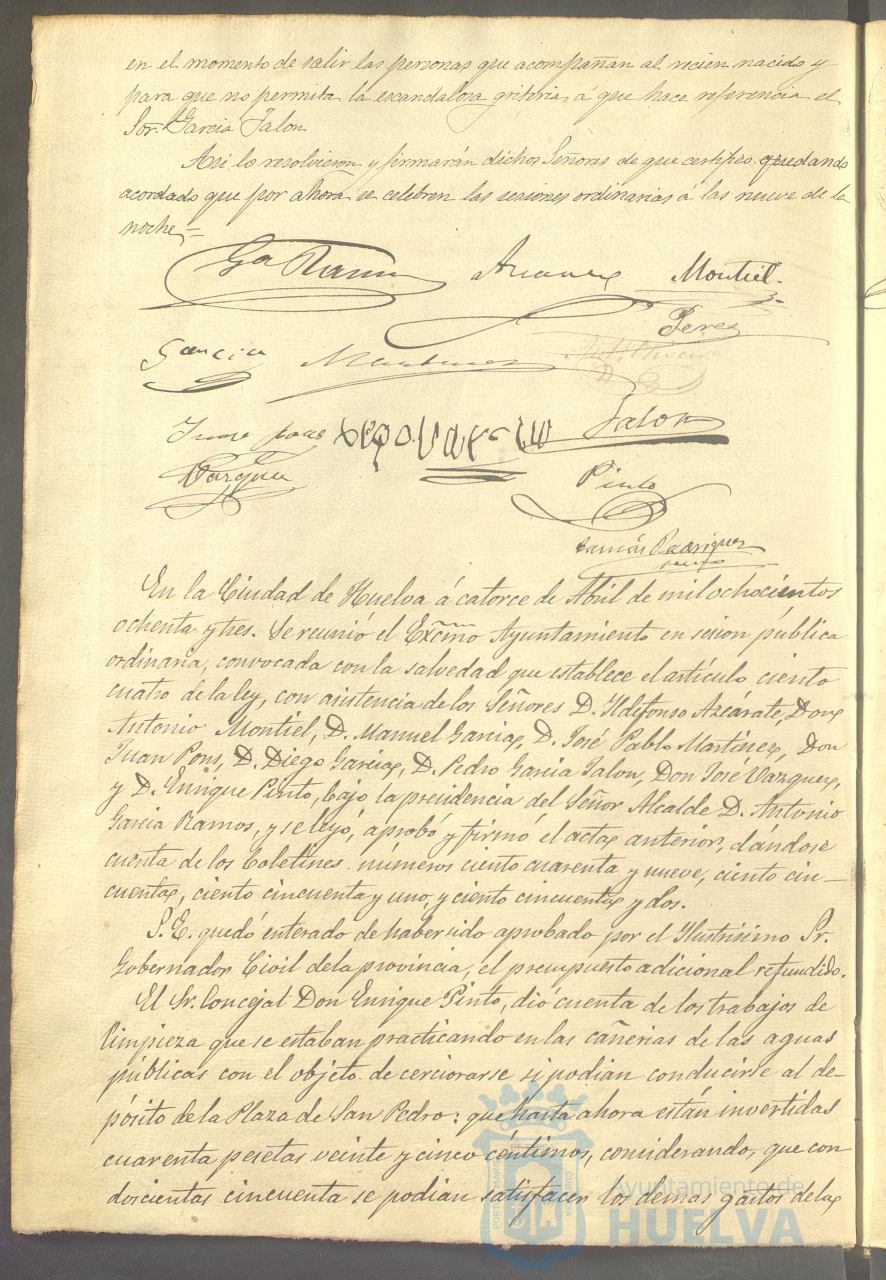 en el momento de salir las personas que acompañan al recien nacido y
para que no permita la escandalosa griteria á que hace referencia el
Sor. Garcia Jalon
Asi lo resolvieron y firmarán dichos Señores de que certifico quedando
acordado que por ahora se celebren las sesiones ordinarias á las nueve de la
noche=
Ga Ramos Montiel.
Perez
Garcia Martinez
Juan pons Jalon
Vazquez
Pinto
Rodriguez
En la Ciudad de Huelva á catorce de Abril de mil ochocientos
ochenta y tres. Se reunió el Excmo Ayuntamiento en sesion pública
ordinaria, convocada con la salvedad que establece el artículo ciento
cuatro de la ley, con asistencia de los Señores D. Ildefonso Azcárate, Don
Antonio Montiel, D. Manuel Garcia, D. José Pablo Martinez, Don
Juan Pons, D. Diego Garcia, D. Pedro Garcia Jalon, Don José Vazquez,
y D. Enrique Pinto, bajo la presidencia del Señor Alcalde D. Antonio
Garcia Ramos, y se leyó, aprobó y firmó el acta anterior, dándose
cuenta de los boletines números ciento cuarenta y nueve, ciento cin-
cuenta, ciento cincuenta y uno, y ciento cincuenta y dos.
S. E. quedó enterado de haber sido aprobado por el Ilustrisimo Sr.
Gobernador Civil de la provincia, el presupuesto adicional refundido.
El Sr. Concejal Don Enrique Pinto, dió cuenta de los trabajos de
limpieza que se estaban practicando en las cañerias de las aguas
públicas con el objeto de cerciorarse si podian conducirse al de-
pósito de la Plaza de San Pedro: que hasta ahora están invertidas
cuarenta pesetas veinte y cinco céntimos, considerando, que con
doscientas cincuenta se podian satisfacer los demas gastos de la
Ayuntamiento de
HUELVA